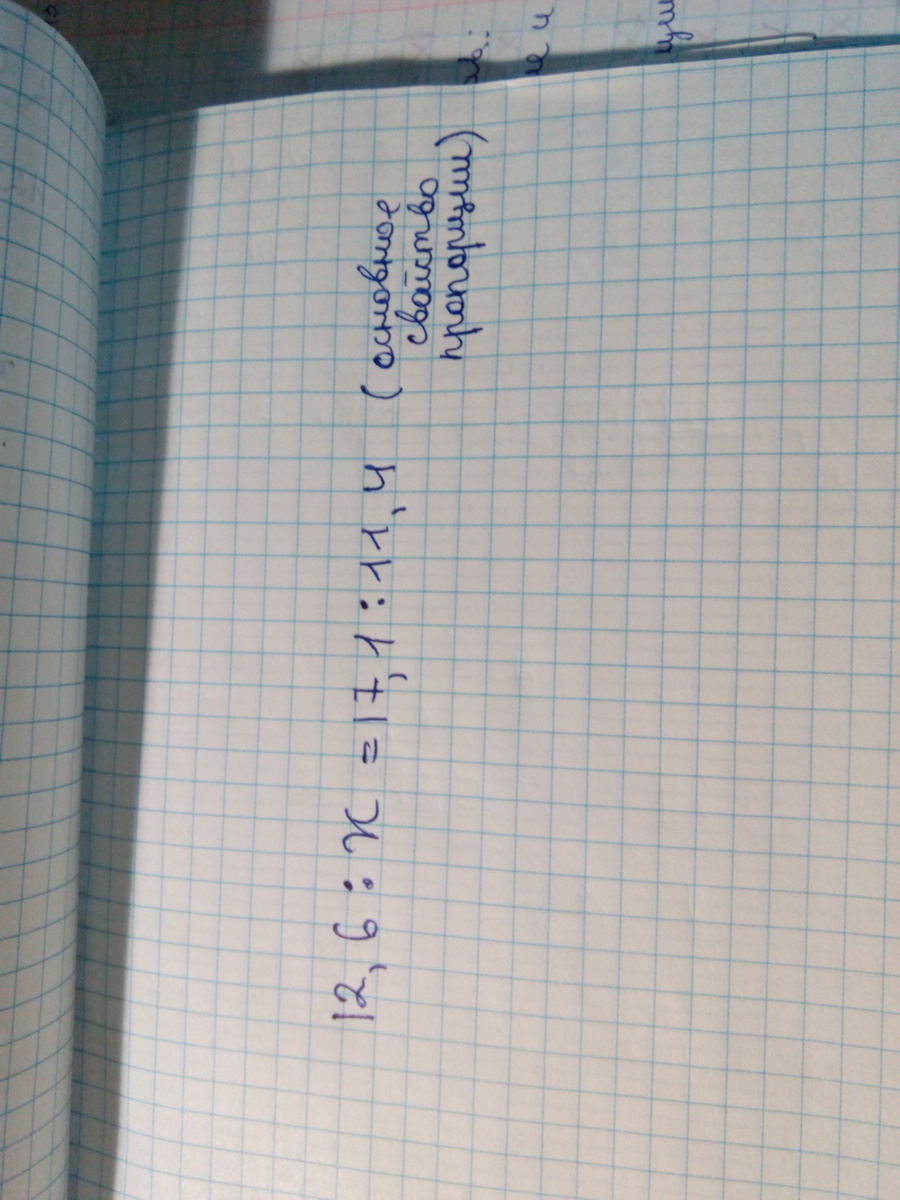 12,6 : x = 17,1 : 11,4 (основное
свойство
пропорции)